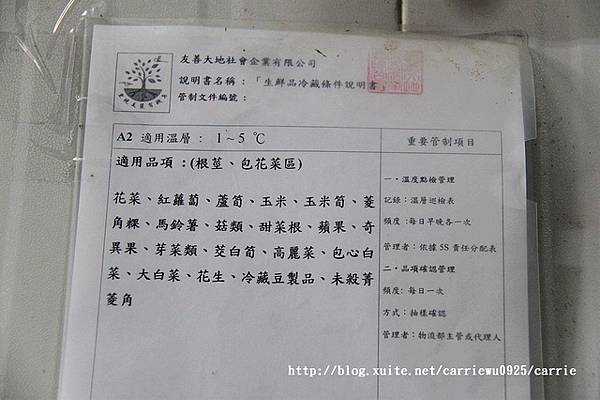 友善大地社會企業有限公司
說明書名稱：「生鮮品冷藏條件說明書」
管制文件編號：
A2 適用溫層： 1~5 ℃
適用品項：(根莖、包花菜區)
花菜、紅蘿蔔、蘆筍、玉米、玉米筍、菱
角粿、馬鈴薯、菇類、甜菜根、蘋果、奇
異果、芽菜類、茭白筍、高麗菜、包心白
菜、大白菜、花生、冷藏豆製品、未殺菁
菱角
重要管制項目
一、溫度點檢管理
記錄：溫層巡檢表
頻度：每日早晚各一次
管理者：依據 5S 責任分配表
二、品項確認管理
頻度：每日一次
方式：抽樣確認
管理者：物流部主管或代理人
http://blog.xuite.net/carriewu0925/carrie